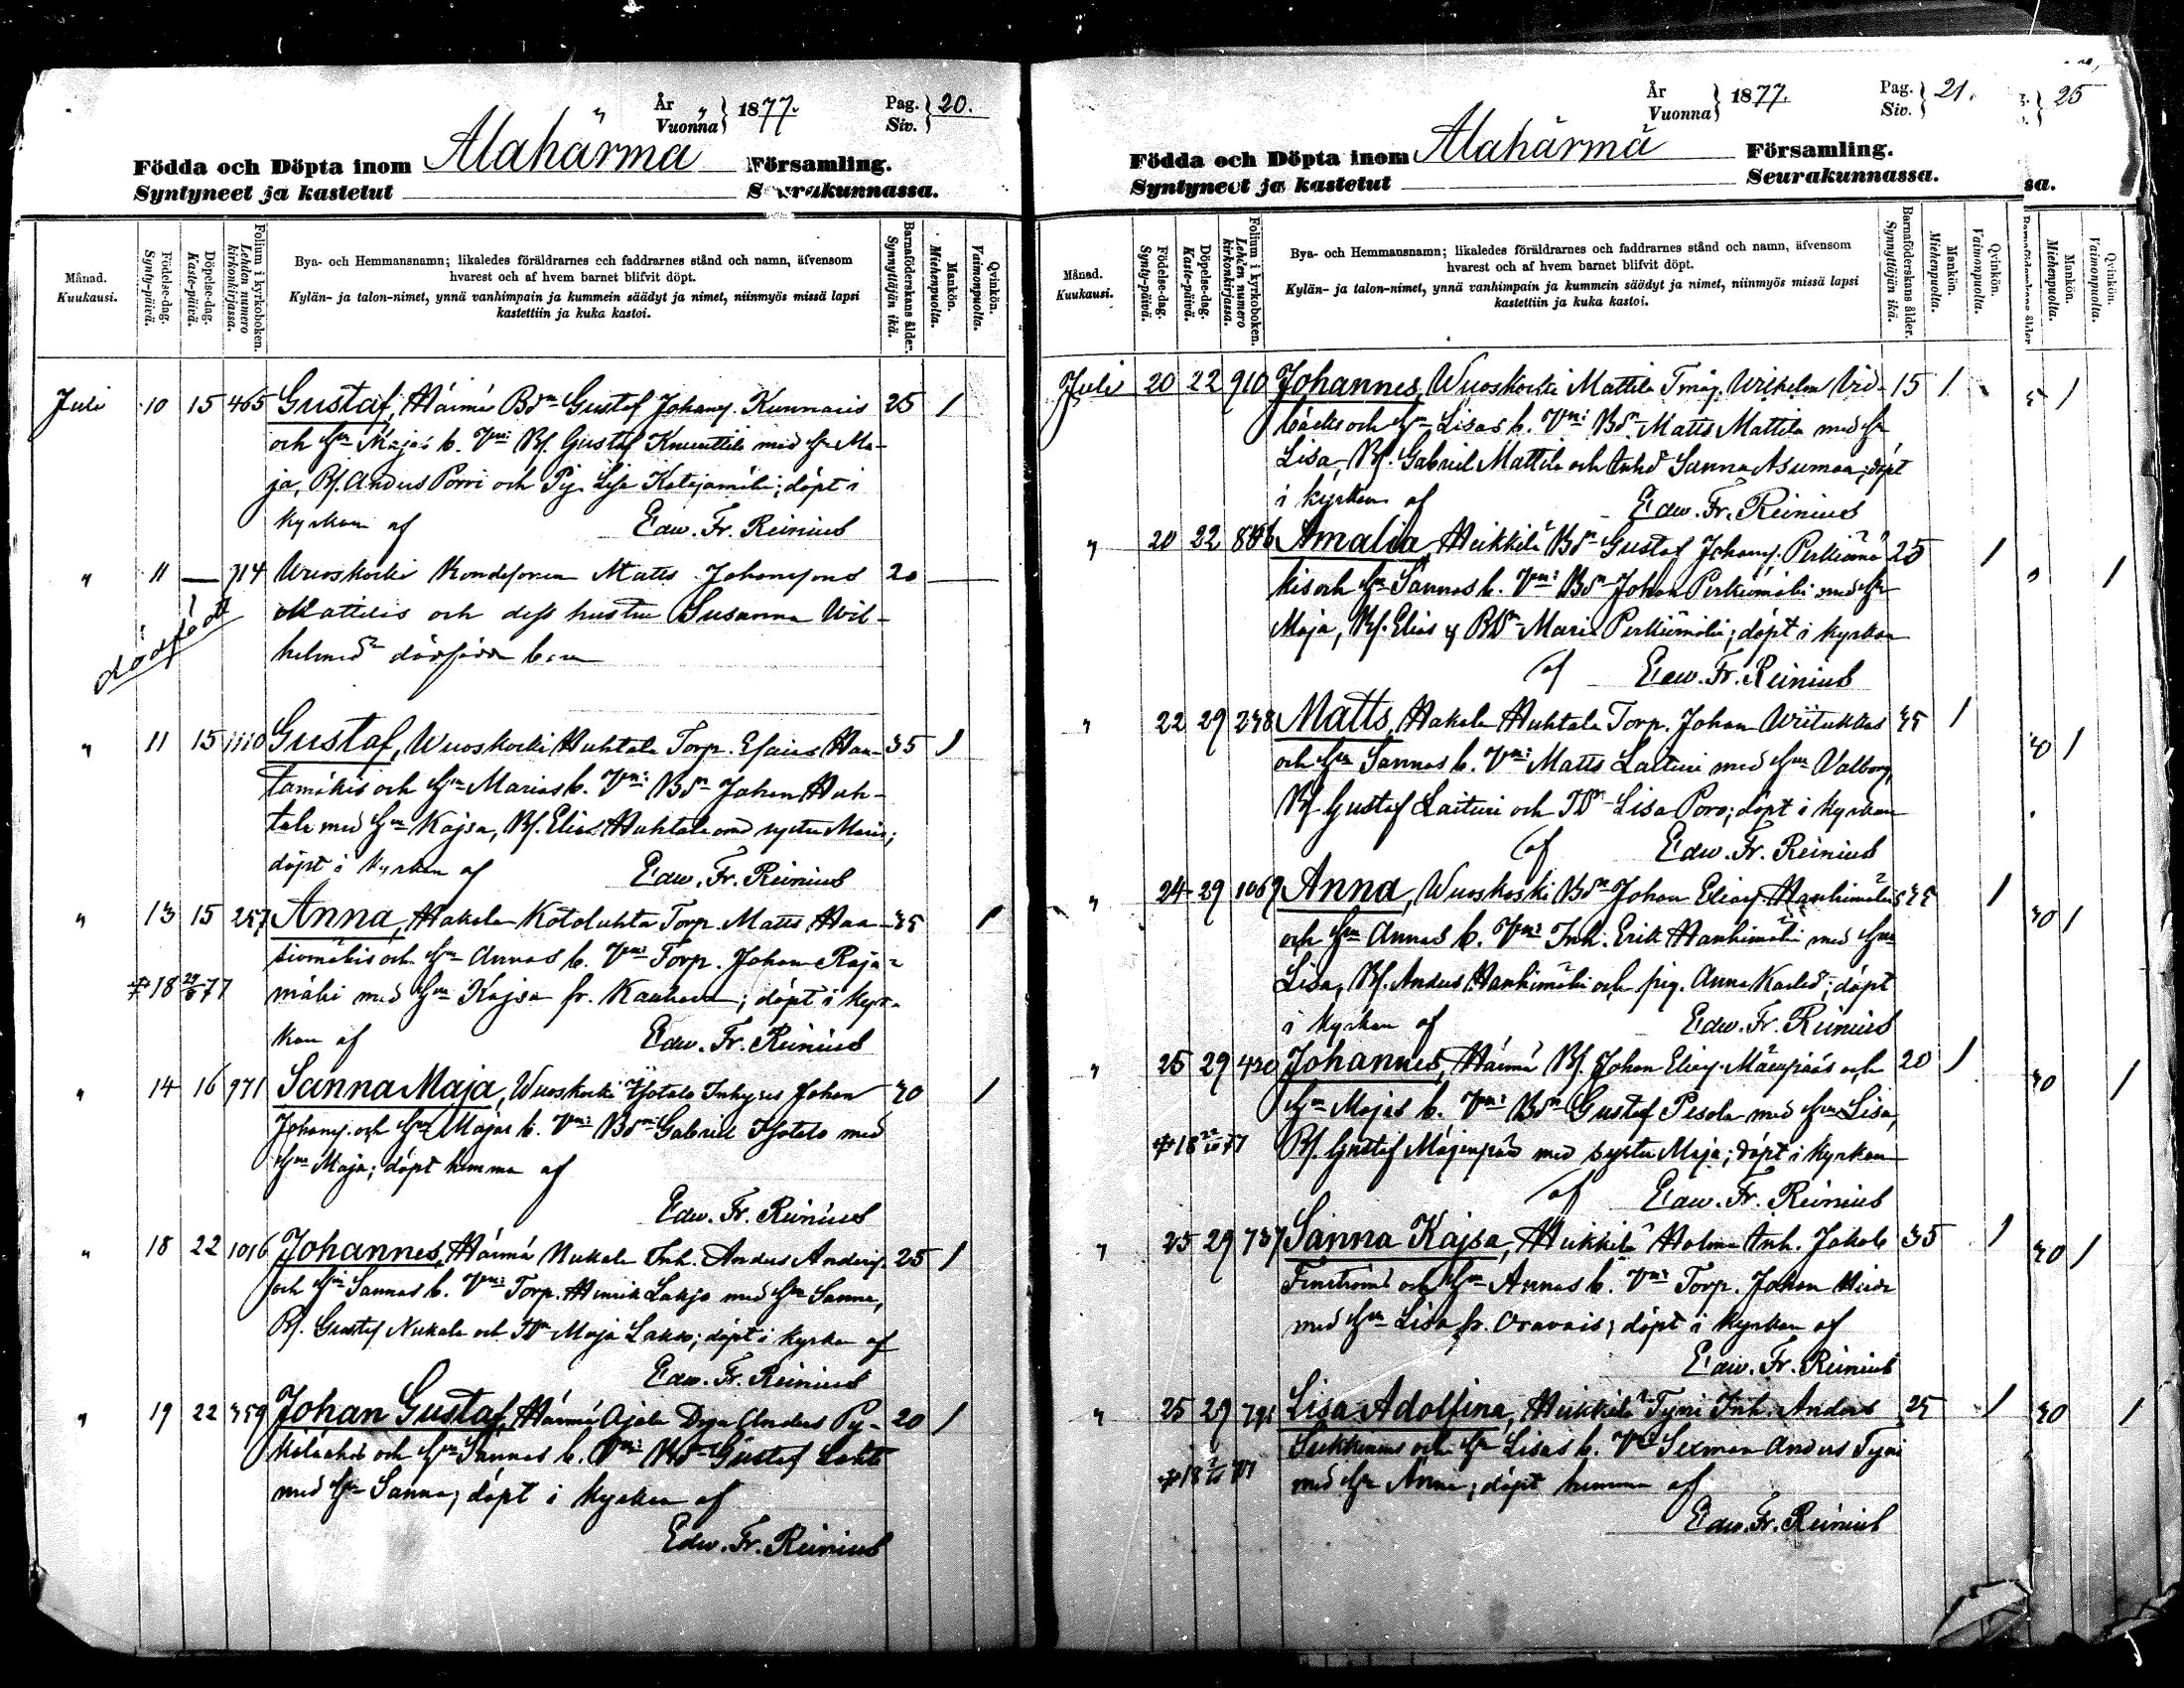 År Vuonna } 1877. Pag. Siv. } 20.
Födda och Döpta inom Alahärmä Församling.
Syntyneet ja kastetut Seurakunnassa.
Månad. Kuukausi.
Födelse-dag. Synty-päivä.
Döpelse-dag. Kaste-päivä.
Folium i kyrkoboken. Lehden numero kirkonkirjassa.
Bya- och Hemmansnamn; likaledes föräldrarnes och faddrarnes stånd och namn, äfvensom
hvarest och af hvem barnet blifvit döpt.
Kylän- ja talon-nimet, ynnä vanhimpain ja kummein säädyt ja nimet, niinmyös missä lapsi
kastettiin ja kuka kastoi.
Barnaföderskans ålder. Synnyttäjän ikä.
Mankön. Miehenpuolta.
Qvinkön. Vaimonpuolta.
Juli 10 15 465 Gustaf, Härmä Bdn Gustaf Johansj. Kunnaris 25 1
och Hu Majas b. Vn: Bs. Gustaf Knuuttila med Hu Ma-
ja, Bs. Anders Porri och Pig. Lisa Katajamäki; döpt i
kyrkan af Edw. Fr. Reinius
" 11 — 714 Wuoskoski Mattes Johanssons 20
Mattilas och dess hustru Susanna Wil-
helmas dödfödda barn
dödfödt
" 11 15 1110 Gustaf, Wuoskoski Huhtala Torp. Esaias Han- 35 1
tamäkis och Hu Marias b. Vn: Bdn Johan Huh-
tala med Hu Kajsa, Bs. Elias Huhtala med syster Maria;
döpt i kyrkan af Edw. Fr. Reinius
" 13 15 257 Anna, Hakola Kotoluhta Torp. Matts Haa- 35 1
siomäkis och Hu Annas b. Vn: Torp. Johan Raja-
mäki med Hu Kajsa fr. Kauhava; döpt i kyr-
‡ 18 29/8 77
kan af Edw. Fr. Reinius
" 14 16 971 Sanna Maja, Wuoskoski Isotalo Inhyses Johan 40 1
Johansj. och Hu Majas b. Vn: Bdn Gabriel Isotalo med
Hu Maja; döpt hemma af
Edw. Fr. Reinius
" 18 22 1016 Johannes, Härmä Nukala Inh. Anders Andersj. 25 1
och Hu Sannas b. Vn: Torp. Henrik Lakso med Hu Sanna,
Bs. Gustaf Nukala och Maja Lakso; döpt i kyrkan af
Edw. Fr. Reinius
" 19 22 359 Johan Gustaf, Härmä Ajola Anders Py- 20 1
och Hu Sannas b. Vn: Bdn Gustaf Lahti
med Hu Sanna; döpt i kyrkan af
Edw. Fr. Reinius
År Vuonna } 1877. Pag. Siv. } 21.
25
Födda och Döpta inom Alahärmä Församling.
Syntyneet ja kastetut Seurakunnassa.
sa.
Månad. Kuukausi.
Födelse-dag. Synty-päivä.
Döpelse-dag. Kaste-päivä.
Folium i kyrkoboken. Lehden numero kirkonkirjassa.
Bya- och Hemmansnamn; likaledes föräldrarnes och faddrarnes stånd och namn, äfvensom
hvarest och af hvem barnet blifvit döpt.
Kylän- ja talon-nimet, ynnä vanhimpain ja kummein säädyt ja nimet, niinmyös missä lapsi
kastettiin ja kuka kastoi.
Barnaföderskans ålder. Synnyttäjän ikä.
Mankön. Miehenpuolta.
Qvinkön. Vaimonpuolta.
Mankön. Miehenpuolta.
Qvinkön. Vaimonpuolta.
Juli 20 22 910 Johannes, Wuoskoski Mattila Wilhelm Vid- 15 1
bäcks och Hu Lisas b. Vn: Bdn Matts Mattila med Hu
Lisa, Bs. Gabriel Mattila och Sanna Asumaa; döpt
i kyrkan af Edw. Fr. Reinius
" 20 22 Amalia, Heikkilä Bdn Gustaf Johansj. Perkiömä- 25 1
kis och Hu Sannas b. Vn: Bdn Johan Perkiömäki med Hu
Maja, Bs. Elias & Maria Perkiömäki; döpt i kyrkan
af Edw. Fr. Reinius
" 22 29 248 Matts, Hakola Huhtala Torp. Johan Wiitukkas 45 1
och Hu Sannas b. Vn: Matts Laituri med Hu Valborg,
Bs. Gustaf Laituri och Lisa Poro; döpt i kyrkan
af Edw. Fr. Reinius
" 24 29 1069 Anna, Wuoskoski Bdn Johan Eliasj. Hanhimäkis 45 1
och Hu Annas b. Vn: Inh. Erik Hanhimäki med Hu
Lisa, Bs. Anders Hanhimäki och pig. Anna; döpt
i kyrkan af Edw. Fr. Reinius
" 25 29 420 Johannes, Härmä Bs. Johan Eliasj. Mäenpääs och 20 1
Hu Majas b. Vn: Bdn Gustaf Pesola med Hu Lisa,
‡ 18 22/10 77
Bs. Gustaf Mäjenpää med syster Maja; döpt i kyrkan
af Edw. Fr. Reinius
" 25 29 737 Sanna Kajsa, Heikkilä Holma Inh. Jakob 35 1
Finströms och Hu Annas b. Vn: Torp. Johan
med Hu Lisa fr. Oravais; döpt i kyrkan af
Edw. Fr. Reinius
" 25 29 791 Lisa Adolfina, Heikkilä Tyni Inh. Anders 25 1
och Hu Lisas b. Vn: Sexman Anders Tyni
med Hu Anna; döpt hemma af
Edw. Fr. Reinius